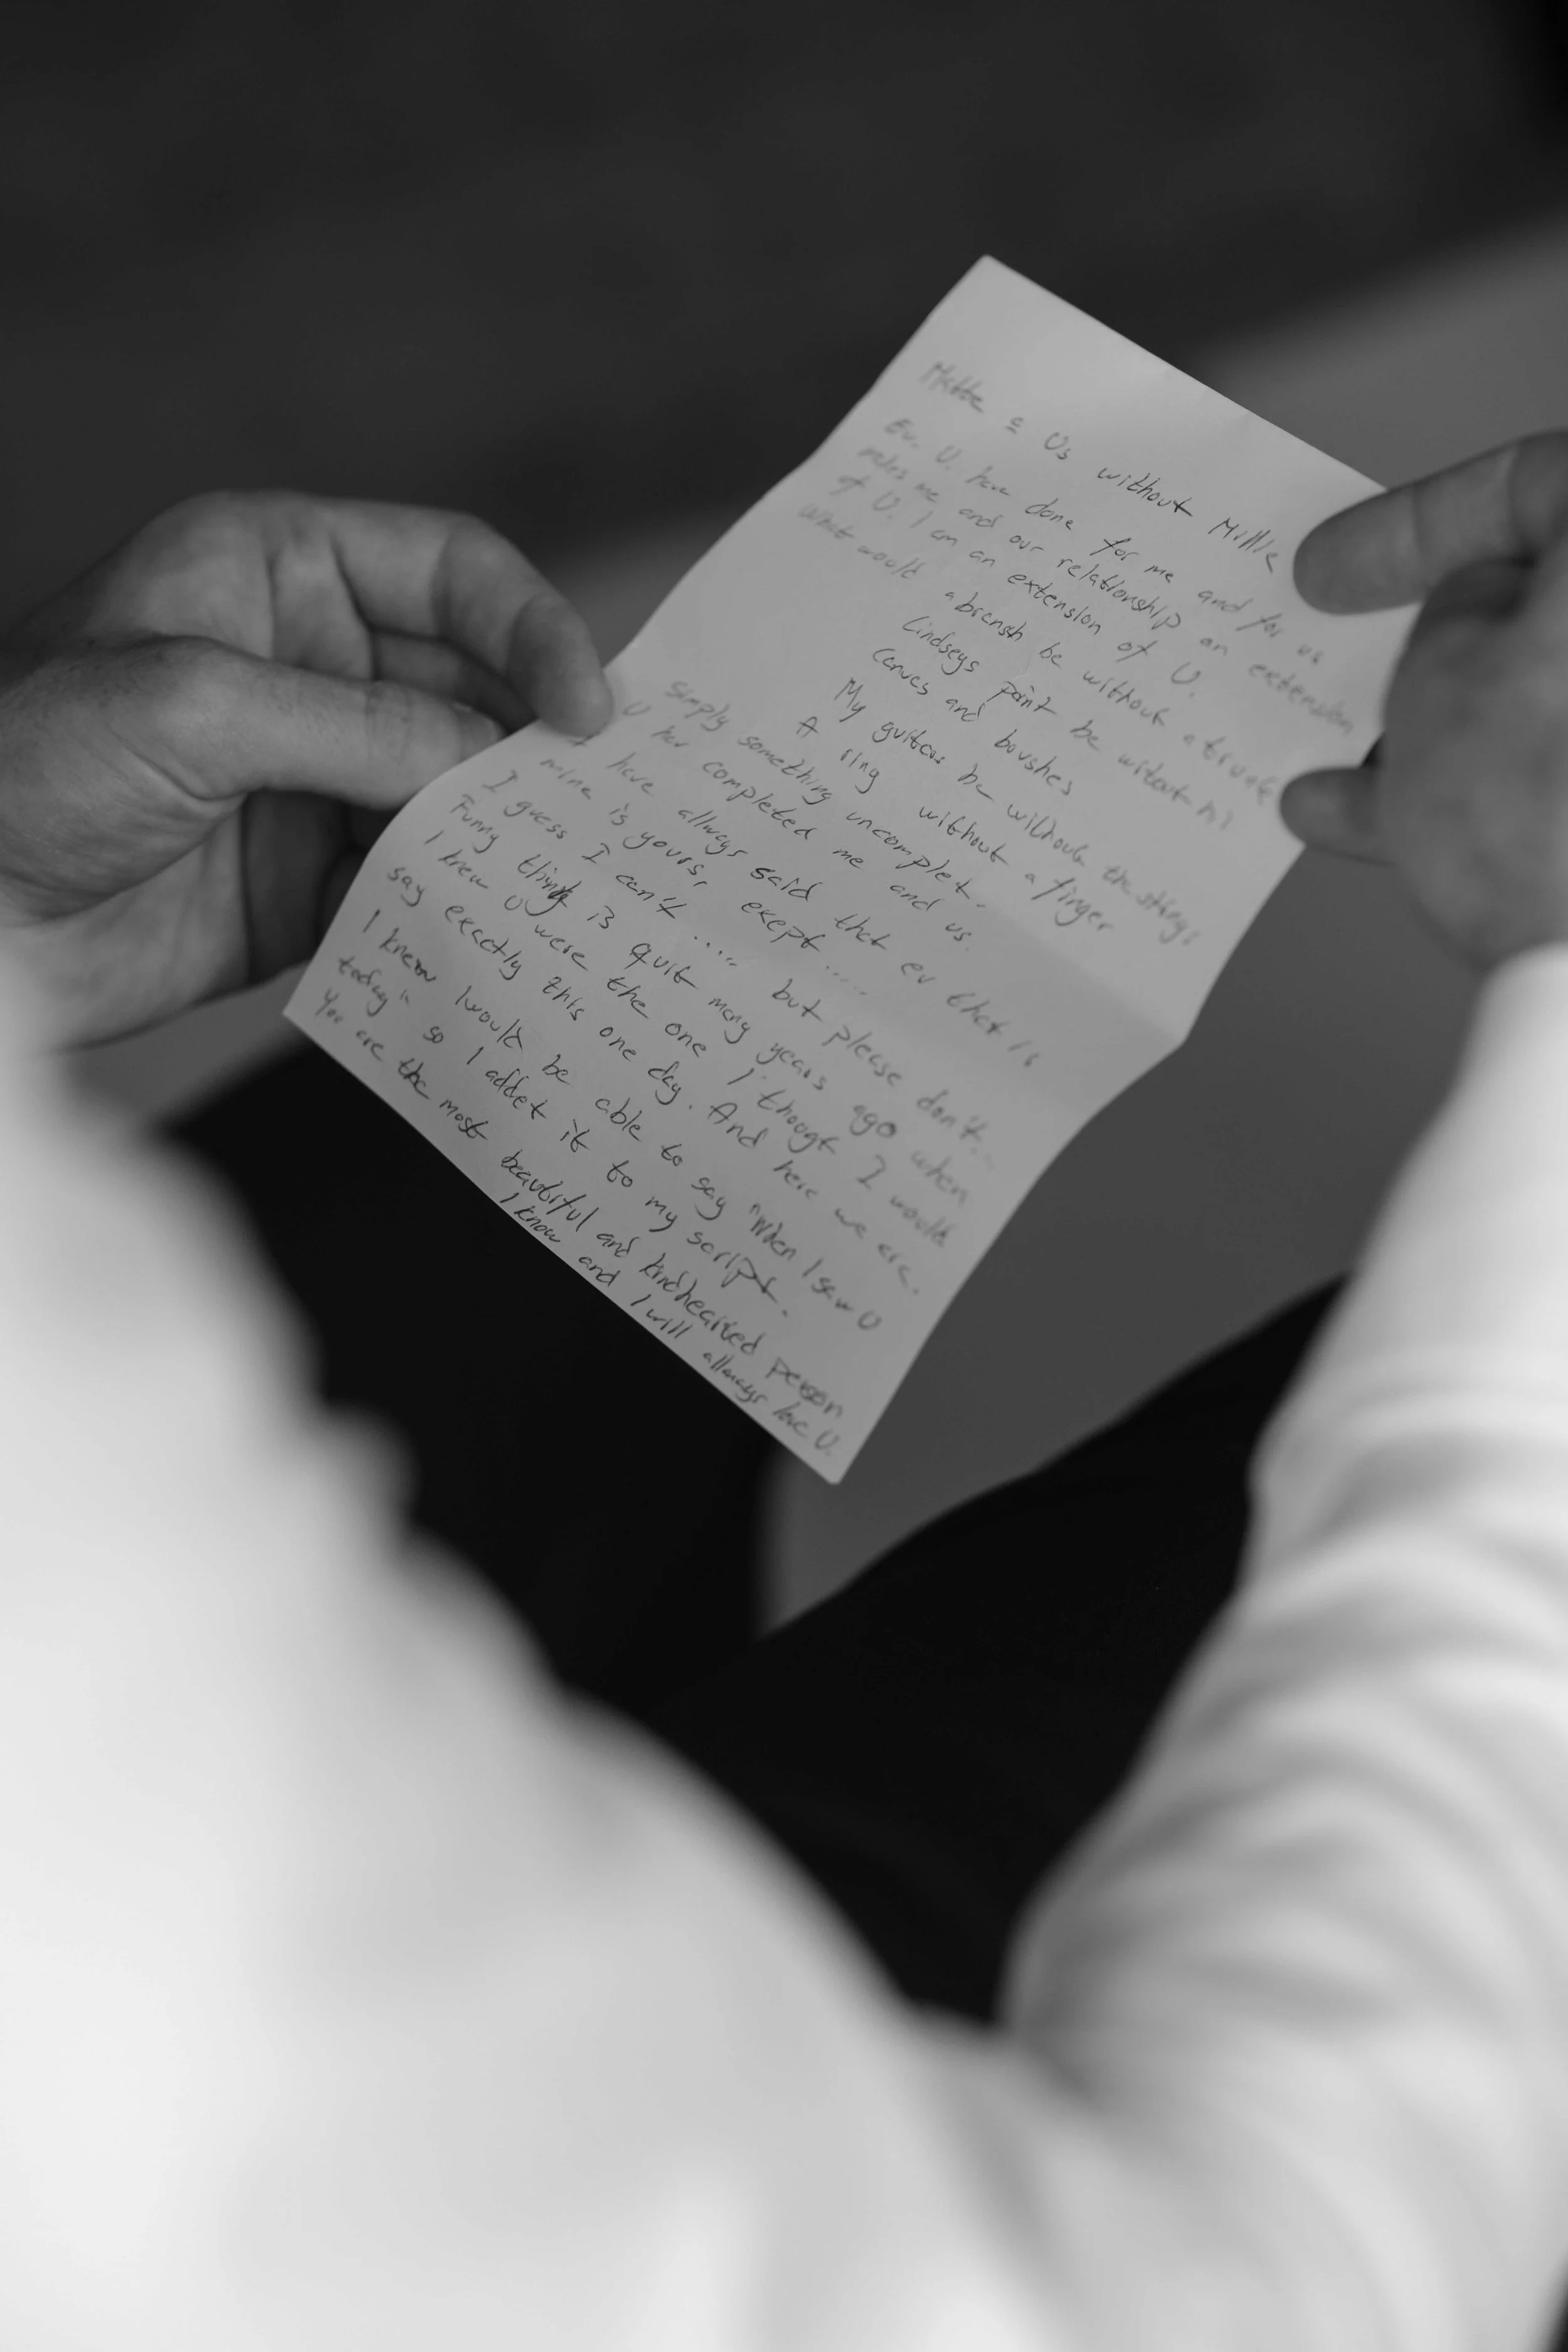 = Us without Mille
Ev. U. have done for me and for us
me and our relationship an extension
of U. I am an extension of U.
What would a bransh be without a trunk
Lindseys paint be without his
canves and boushes
My guitars be without the strings
A ring without a finger
Simply something uncomplet.
U hav completed me and us.
I have allways said that ev that is
mine is yours, exept .....
I guess I can't ..... but please don't...
Funny thing is quit many years ago when
I knew U were the one I thougt I would
say exactly this one day. And here we are.
I knew I would be able to say "When I saw U
today" so I addet it to my script.
You are the most beautiful and kindhearted person
I know and I will allways love U.